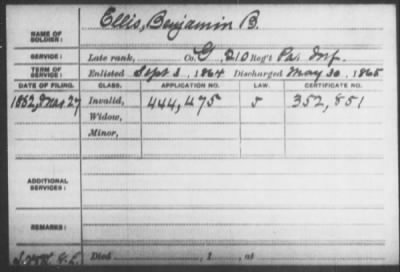 Ellis, Benjamin B.
NAME OF SOLDIER:
SERVICE: Late rank, Co. G, 210 Reg't Pa. Inf.
TERM OF SERVICE: Enlisted Sept 3, 1864 Discharged May 30, 1865
DATE OF FILING. CLASS. APPLICATION NO. LAW. CERTIFICATE NO.
1882, Mar 27 Invalid, 444,475 5 352,851
Widow,
Minor,
ADDITIONAL SERVICES:
REMARKS:
Died , 1 , at